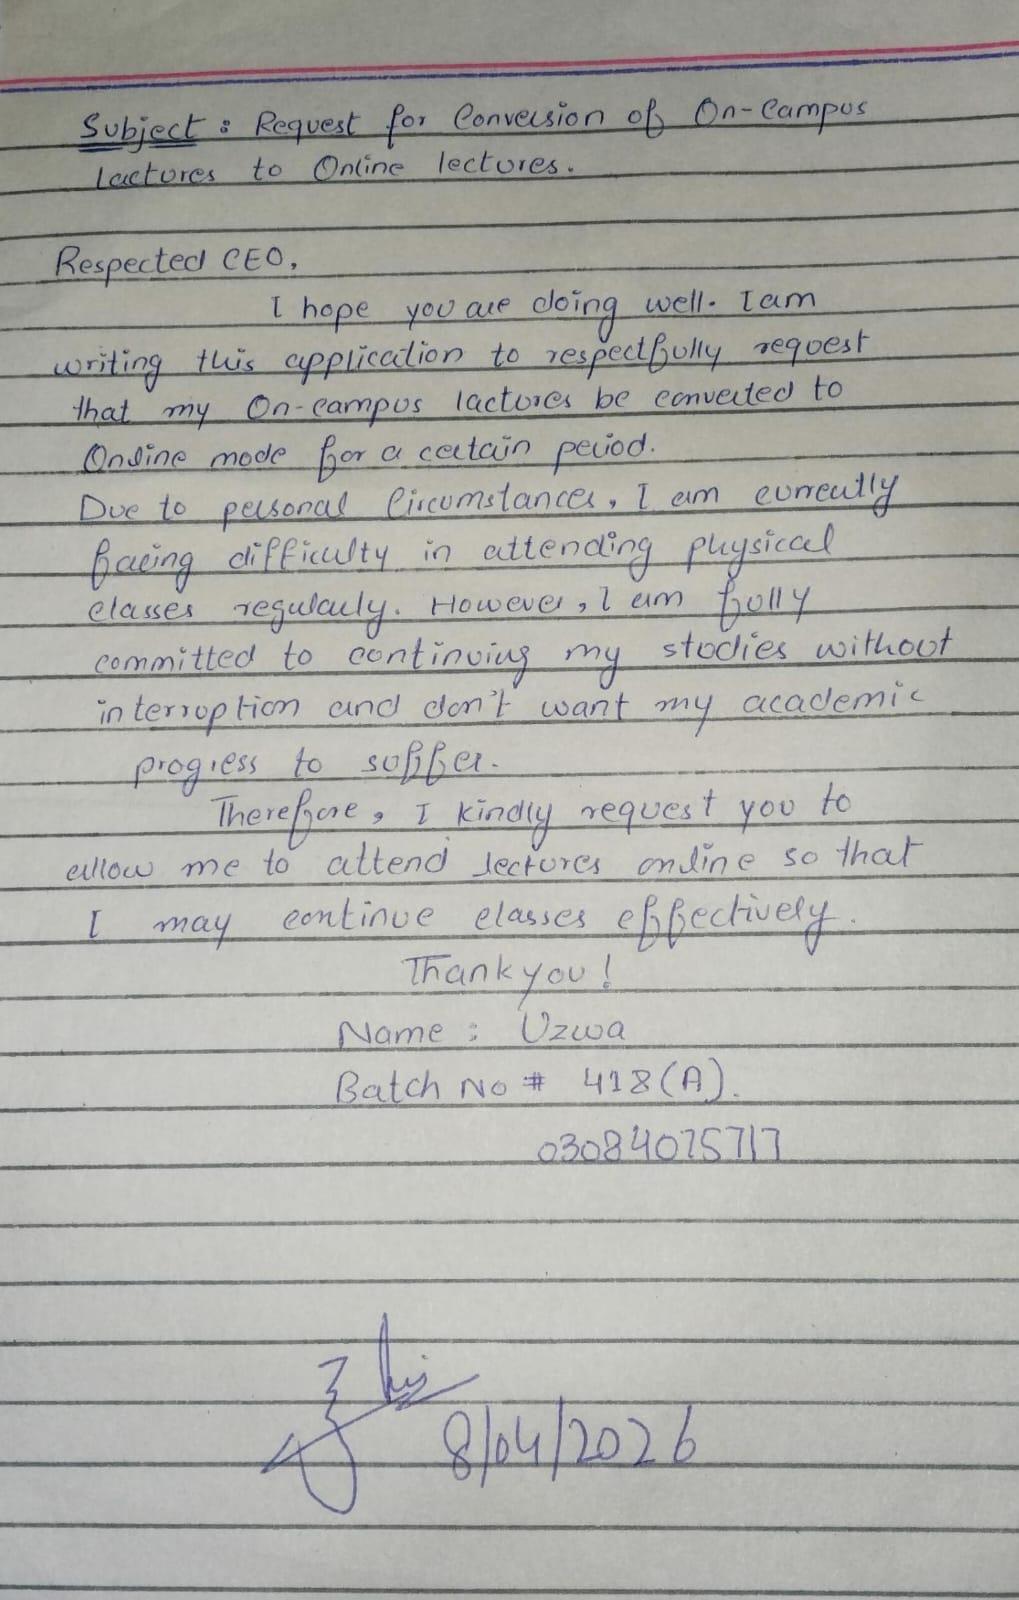 Subject : Request for Conversion of On-Campus
lactures to Online lectures.
Respected CEO,
I hope you are doing well. I am
writing this application to respectfully request
that my On-campus lactures be converted to
Online mode for a certain period.
Due to personal Circumstances, I am currently
facing difficulty in attending physical
classes regularly. However, I am fully
committed to continuing my studies without
interruption and don't want my academic
progress to suffer.
Therefore, I kindly request you to
allow me to attend lectures online so that
I may continue classes effectively.
Thank you!
Name : Uzwa
Batch No # 418(A).
03084075717
8/04/2026